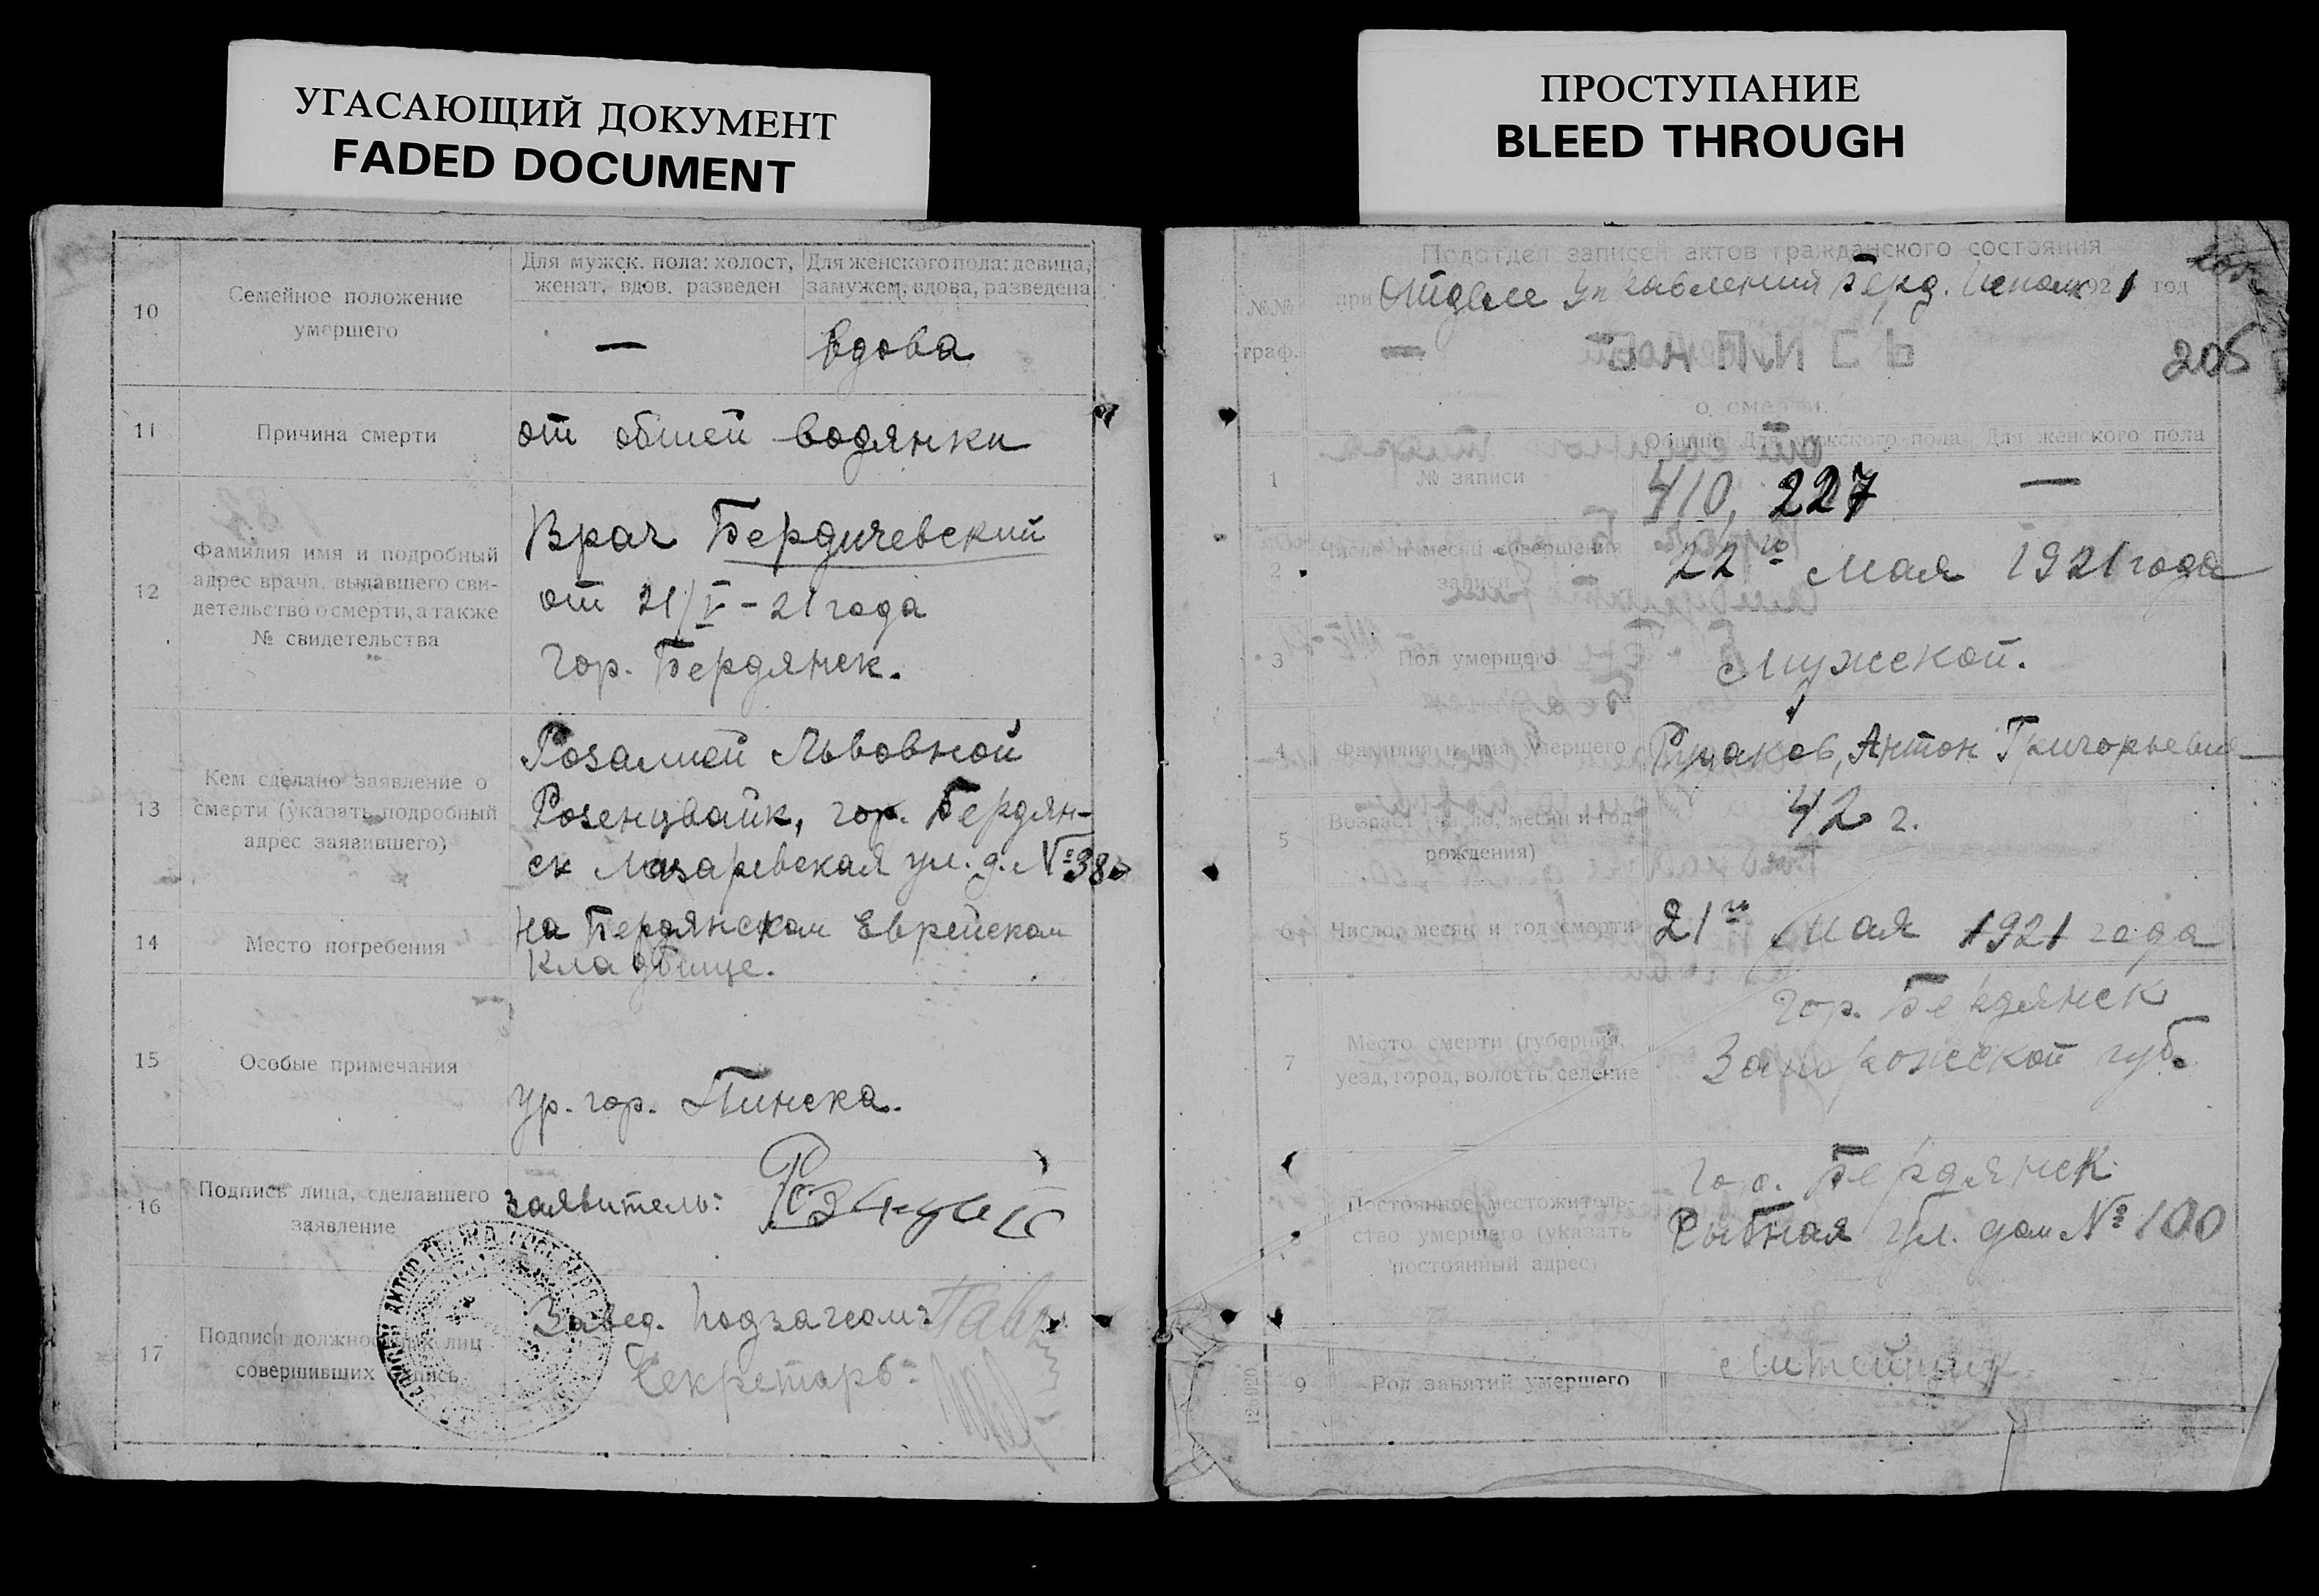 УГАСАЮЩИЙ ДОКУМЕНТ
FADED DOCUMENT
10
Семейное положение
умершего
Для мужск. пола: холост,
женат, вдов. разведен
Для женского пола: девица,
замужем, вдова, разведена
—
вдова
11
Причина смерти
от общей водянки
12
Фамилия имя и подробный
адрес врача, выдавшего сви-
детельство о смерти, а также
№ свидетельства
Врач Бердичевский
от 21/V – 21 года
Гор. Бердянск.
13
Кем сделано заявление о
смерти (указать подробный
адрес заявившего)
Розалией Львовной
Розенцвайк, гор. Бердян-
ск Лазаревская ул. д. № 38
14
Место погребения
на Бердянском Еврейском
кладбище.
15
Особые примечания
ур. гор. Пинска.
16
Подпись лица, сделавшего
заявление
заявитель:
17
Подписи должностных лиц
совершивших запись
Завед. Подзагсом:
Секретарь:
ПРОСТУПАНИЕ
BLEED THROUGH
Подотдел записей актов гражданского состояния
№№
граф.
при Отделе Управления Берд. Исполк 1921 год
206
о смерти.
Общий Для мужского пола Для женского пола
1
№ записи
410, 227 —
2
Число и месяц совершения
записи
22го мая 1921 года
3
Пол умершего
Мужской.
4
Фамилия и имя умершего
Антон Григорьевич
5
Возраст (число, месяц и год
рождения)
42 г.
6
Число, месяц и год смерти
21го мая 1921 года
7
Место смерти (губерния,
уезд, город, волость, селение
гор. Бердянск
Запорожской губ.
8
Постоянное местожитель-
ство умершего (указать
постоянный адрес)
гор. Бердянск
Рыбная ул. дом № 100
9
Род занятий умершего
Литейщик